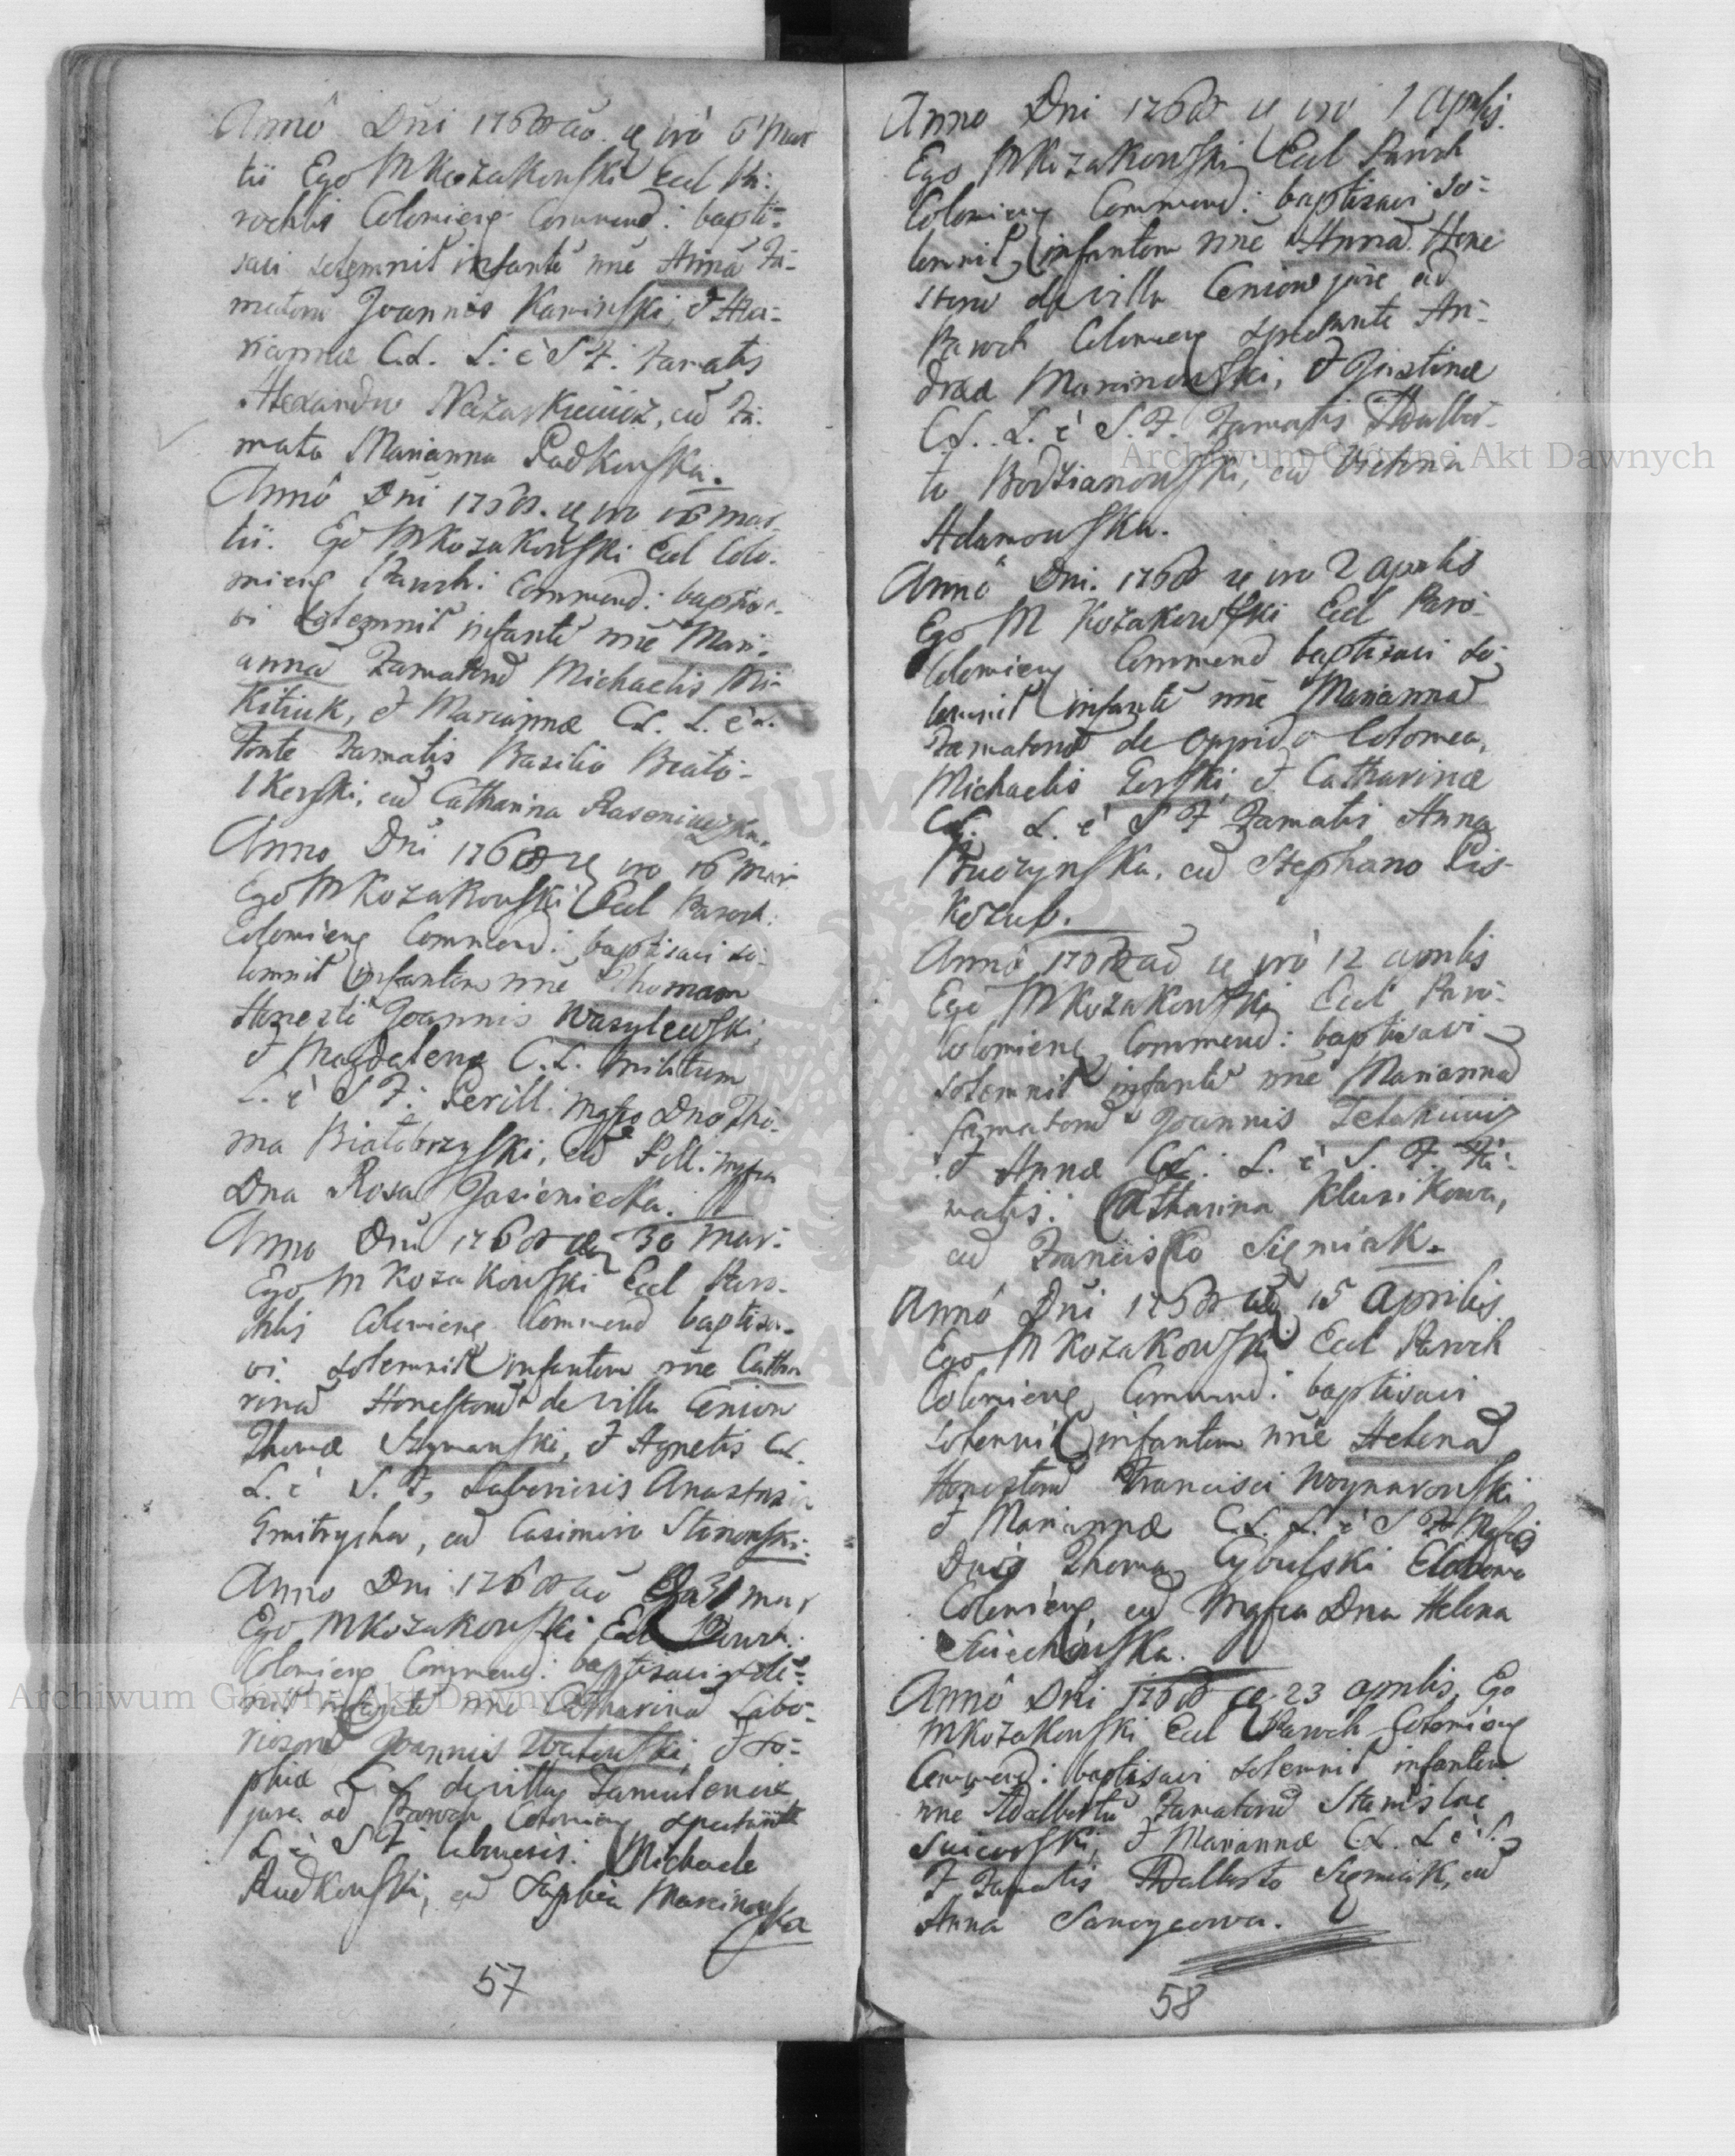 Annô Dñi 1768 aõ. ıe vrò 6 Mar
tii Ego MKozakowski Eccl Pa:
rochlis Colomieng Commend: bapti=
savi solemnit infantẽ nñe Annã Fa-
matorũ Joannis Kaminski, & Mar-
riannæ C.L. L: è S F: Famatis
Alexandro Nazarkiewicz, cũ Fa:
mata Marianna Radkowska.
Annô Dñi 1768. ıe vro 16 mar
tii. Ego MKozakowski Eccl Colo-
mieng Paroch: Commend: baptisa-
vi solemnit infantẽ nñe Mari-
annã Famatorũ Michaelis Mi-
kitiuk, & Mariannæ C.L. L. è S.
Fonte Famatis Basilio
cũ Catharina
Anno Dñi 1768 ıe vro 16 Mar
Ego MKozakowski Eccl Paroch:
Colomieng Commend: baptisavi so-
lemnit infantem nñe Thomam
Honesti Joannis Wasylewski,
& Magdalenæ C.L. militum
L. è S F: Perill: Mgfco Dno Tho-
ma Białobrzyski, cũ Pill: Mgfca
Dna Rosa Jasieniecka.
Anno Dñi 1768 ıe 30 Mar:
Ego M Kozakowski Eccl Paro-
chlis Colomieng Commend baptisa-
vi solemnit infantem nñe Catha
rinã Honestorũ de villa Ceniow
Thomæ Szymanski, & Agnetis C.L.
L. è S. F. Laboriosis Anastasia
Gmitrycha, cũ Casimiro Stanowski.
Anno Dni 1768 aõ 31 mar
Ego MKozakowski Eccl Paroch:
Colomieng Commend: baptisavi solẽ=
nit infantẽ nñe Catharinã Labo-
riosorũ Joannis Watowski, & So-
phiæ C L de villa
jure ad Paroch Colomieng spectante
L è S F laboriosis: Michaele
Rudkowski, cũ Sophia Marcinowska
57
Anno Dni 1768 ıe vro 1 Aprlis.
Ego MKozakowski Eccl Paroch
Colomieng Commend: baptisavi so-
lemnit infantem nñe Annã Hone
storũ de villa Ceniow jure ad
Paroch Colomieng spectante An-
dreæ Marcinowski, & Justinæ
C.L. L. è S. F. Famatis Adalber-
to Bodzianowski, cũ Victoria
Adamowska.
Annô Dni. 1768 ıe vro 2 aprlis
Ego M Kozakowski Eccl Paro-
Colomieng Commend baptisavi so-
lemnit infantẽ nñe Mariannã
Famatorũ de oppido Colomea,
Michaelis Gorski, & Catharinæ
C.L. L. è S F Famatis Anna
Buczynska, cũ Stephano Lis-
Kozub.
Annô 1768 aõ ıe vrò 12 aprilis
Ego MKozakowski Eccl Paro-
Colomieng Commend: baptisavi
solemnit infantẽ nñe Mariannã
famatorũ Joannis Zelakiewicz
& Annæ C.L: L. è S. F. Fa-
matis: Catharina Klusikowa,
cũ Francisco Siemiak.
Annô Dñi 1768 ıe 15 Aprilis
Ego M Kozakowski Eccl Paroch
Colomieng Commend: baptisavi
solemnit infantem nñe Helenã
Honestorũ Francisci Woynarowski
& Mariannæ C.L. L. è S F Mgfcis
Dnis Thoma Cybulski
Colomieng, cũ Mgfca Dna Helena
Annô Dñi 1768 ıe 23 aprlis, Ego
MKozakowski Eccl Paroch Colomieng
Commend: baptisavi solemnit infantem
nñe Adalbertũ Famatorũ Stanislai
& Mariannæ C.L. L è S.
F Famatis Adalberto Siemiak, cũ
Anna
58
Archiwum Główne Akt Dawnych
Archiwum Główne Akt Dawnych